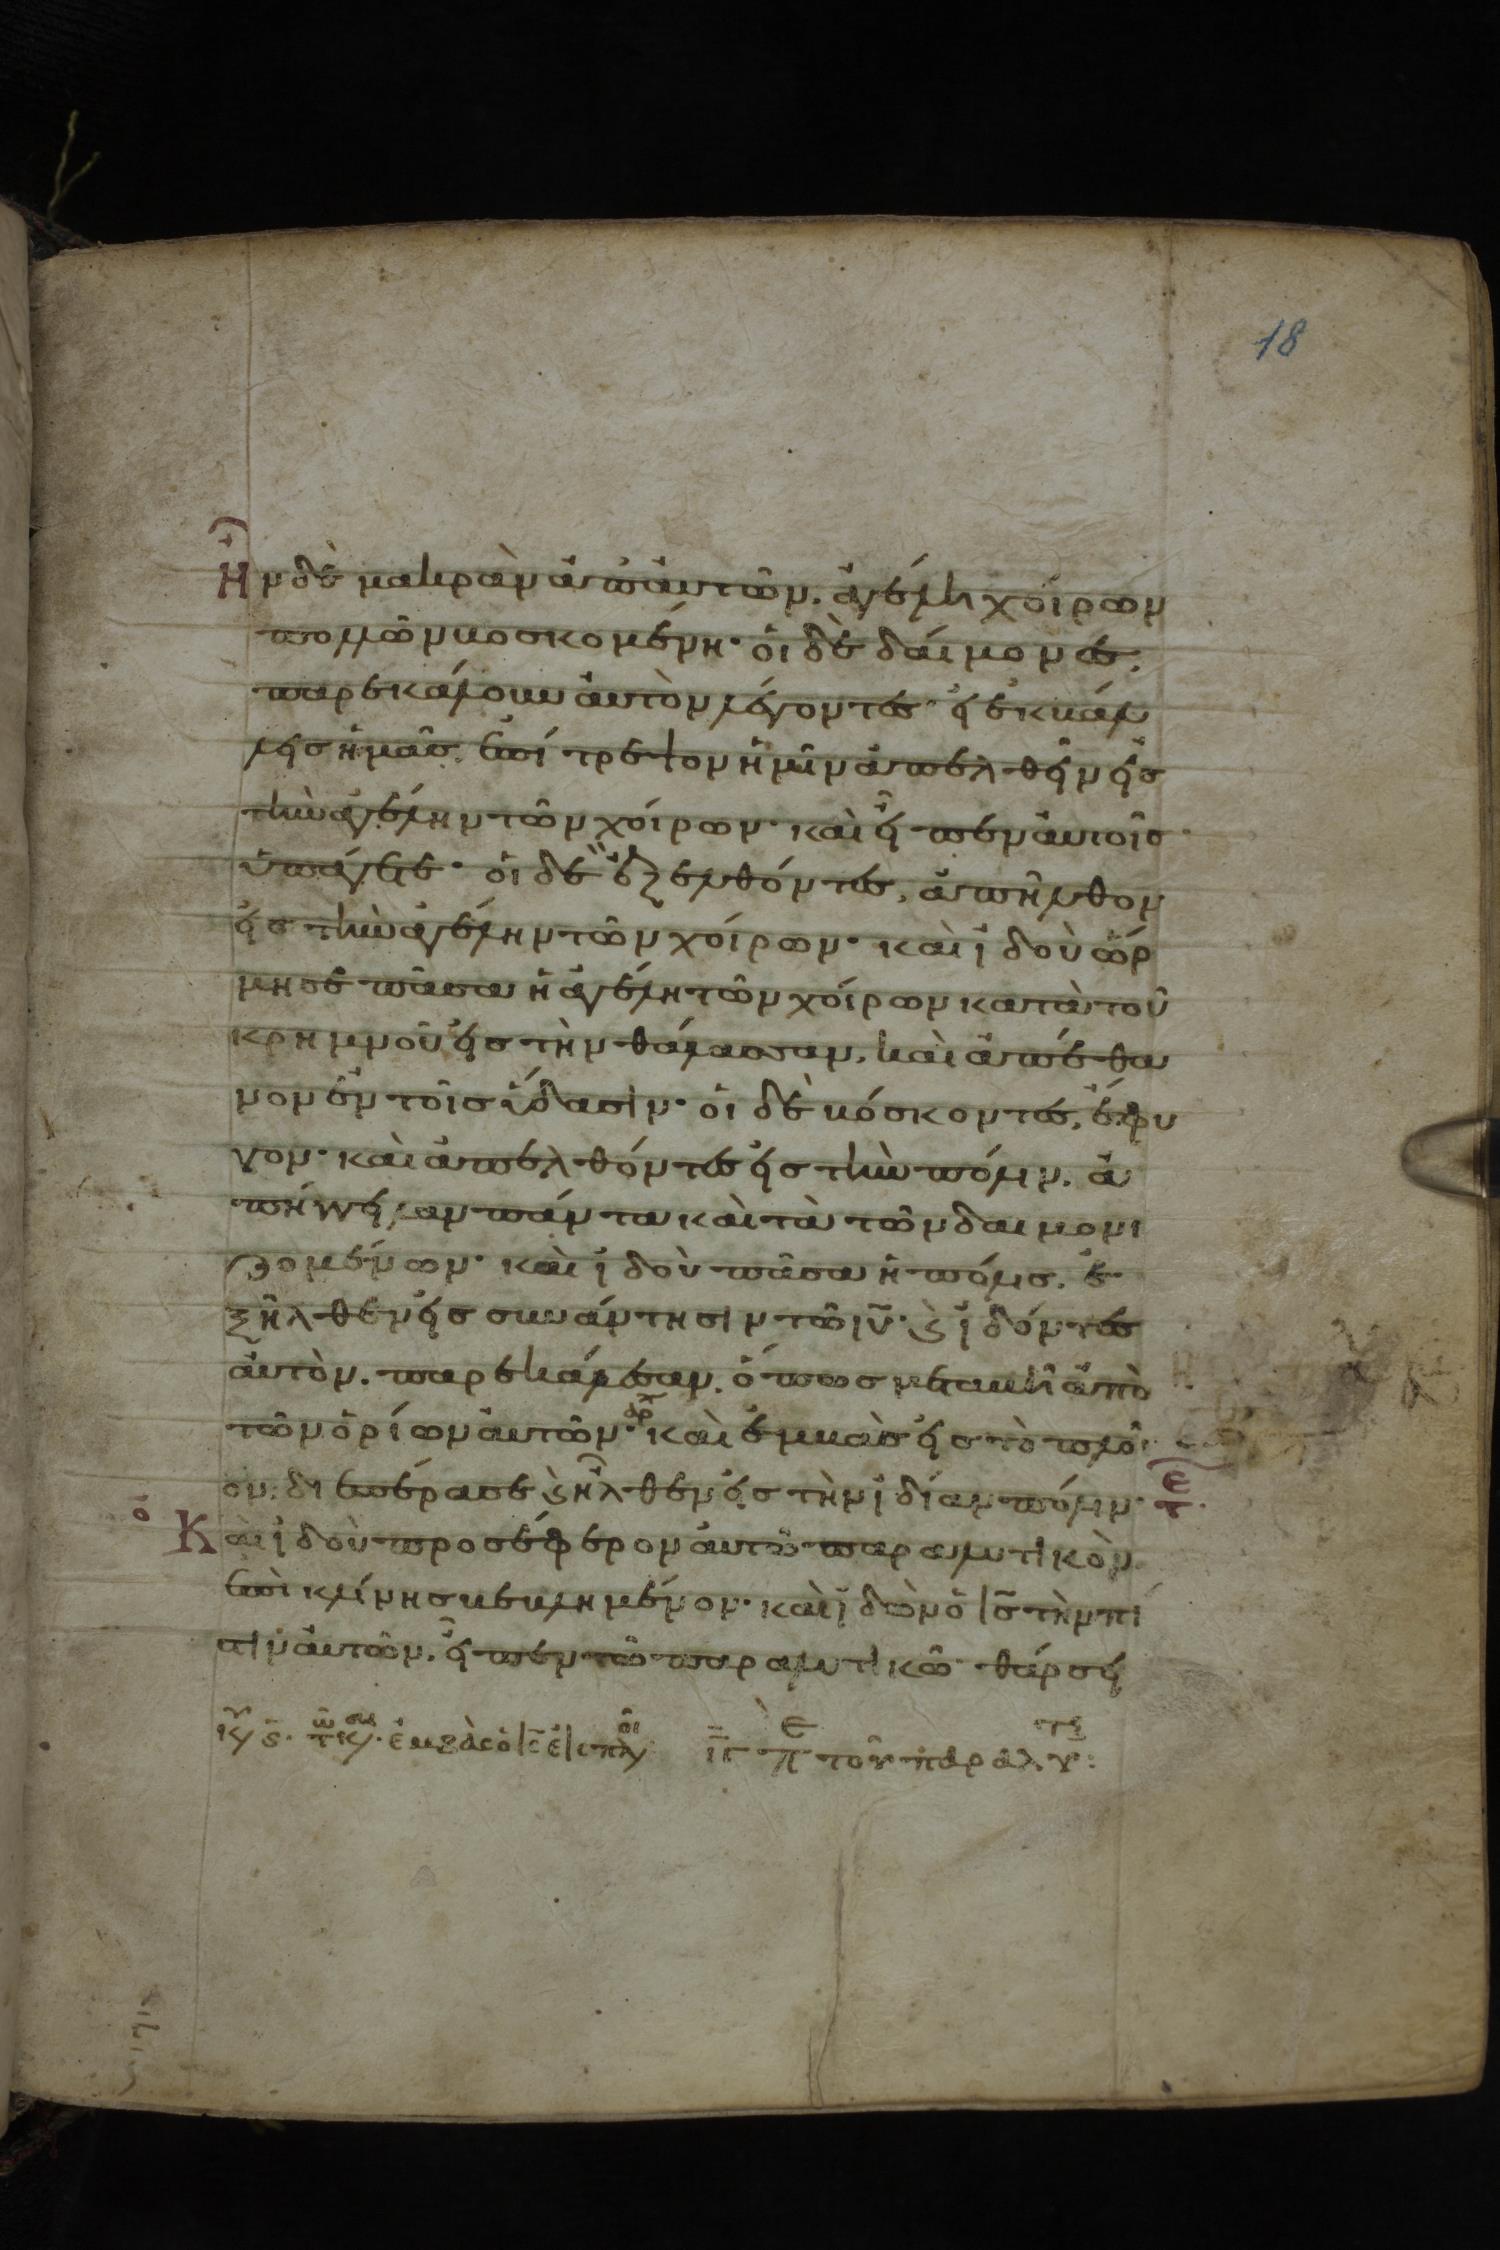 18
Ἦν δὲ μακρὰν ἀπ' αὐτῶν. ἀγέλη χοίρων
πολλῶν βοσκομένη· οἱ δὲ δαίμονες,
παρεκάλουν αὐτὸν λέγοντες· εἰ ἐκβάλ
λεις ἡμᾶς, ἐπίτρεψον ἡμῖν ἀπελθεῖν εἰς
τὴν ἀγέλην τῶν χοίρων· καὶ εἶπεν αὐτοῖς
ὑπάγετε· οἱ δὲ ἐξελθόντες, ἀπῆλθον
εἰς τὴν ἀγέλην τῶν χοίρων· καὶ ἰδοὺ ὥρ
μησε πᾶσα ἡ ἀγέλη τῶν χοίρων κατὰ τοῦ
κρημνοῦ εἰς τὴν θάλασσαν, καὶ ἀπέθα
νον ἐν τοῖς ὕδασιν· οἱ δὲ βόσκοντες, ἔφυ
γον· καὶ ἀπελθόντες εἰς τὴν πόλιν. ἀ
πήγγειλαν πάντα καὶ τὰ τῶν δαιμονι
ζομένων· καὶ ἰδοὺ πᾶσα ἡ πόλις. ἐ
ξῆλθεν εἰς συνάντησιν τῶ ιυ̅· ϗ ἰδόντες
αὐτὸν. παρεκάλεσαν, ὅπως μεταβῆ ἀπὸ
τῶν ὁρίων αὐτῶν· αρχ καὶ ἐμβὰς εἰς τὸ πλοῖ
ον, διεπέρασε ϗ ἦλθεν εἰς τὴν ἰδίαν πόλιν· ε τ
ὁ Καὶ ἰδοὺ προσέφερον αὐτῶ παραλυτικὸν
ἐπὶ κλίνης βεβλημένον· καὶ ἰδὼν ὁ ις̅ τὴν πί
στιν αὐτῶν, εἶπεν τῶ παραλυτικῶ· θάρσει
κυ ς. τῶ κ. ἐμβὰς ὁ ις̅ εἰς πλοι ιγ πε τοῦ παραλυτ: